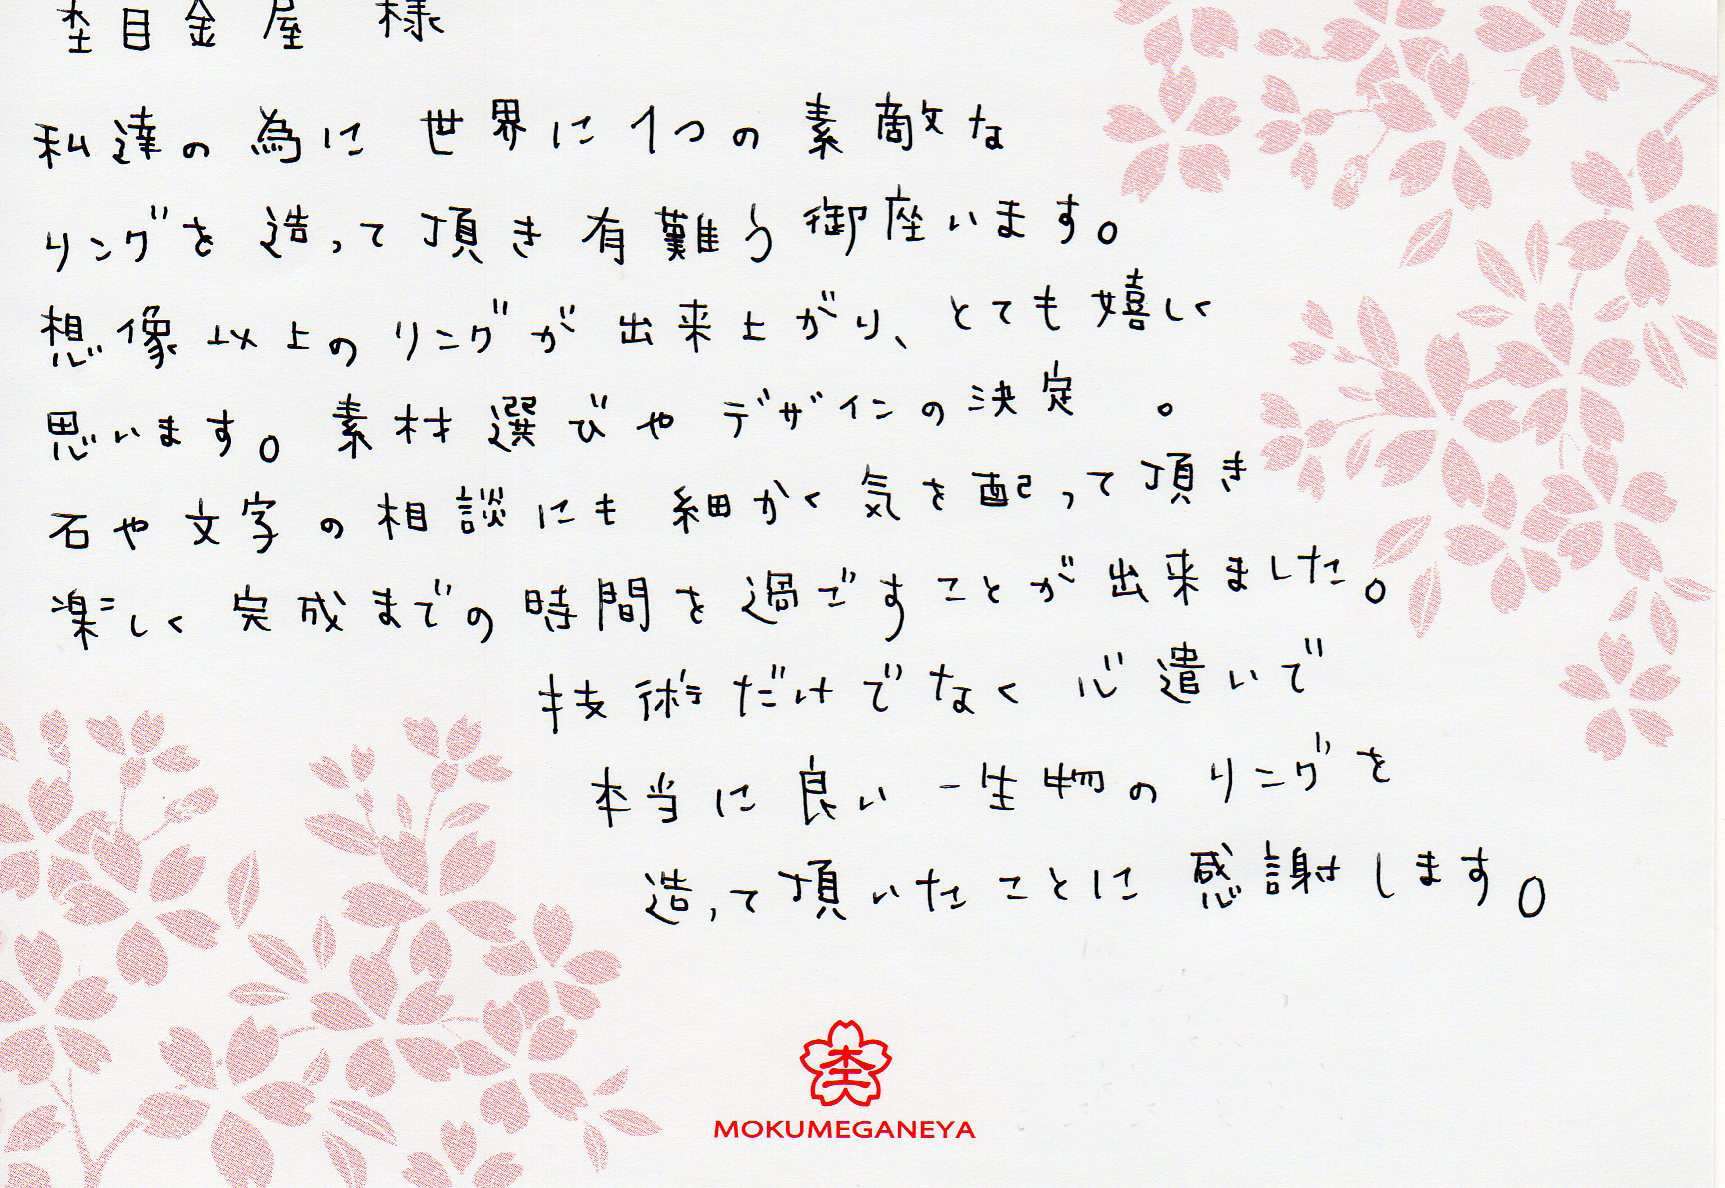 杢目金屋 様
私達の為に世界に1つの素敵な
リングを造って頂き有難う御座います。
想像以上のリングが出来上がり、とても嬉しく
思います。素材選びやデザインの決定 。
石や文字の相談にも細かく気を配って頂き
楽しく完成までの時間を過ごすことが出来ました。
技術だけでなく心遣いで
本当に良い一生物のリングを
造って頂いたことに感謝します。
杢
MOKUMEGANEYA